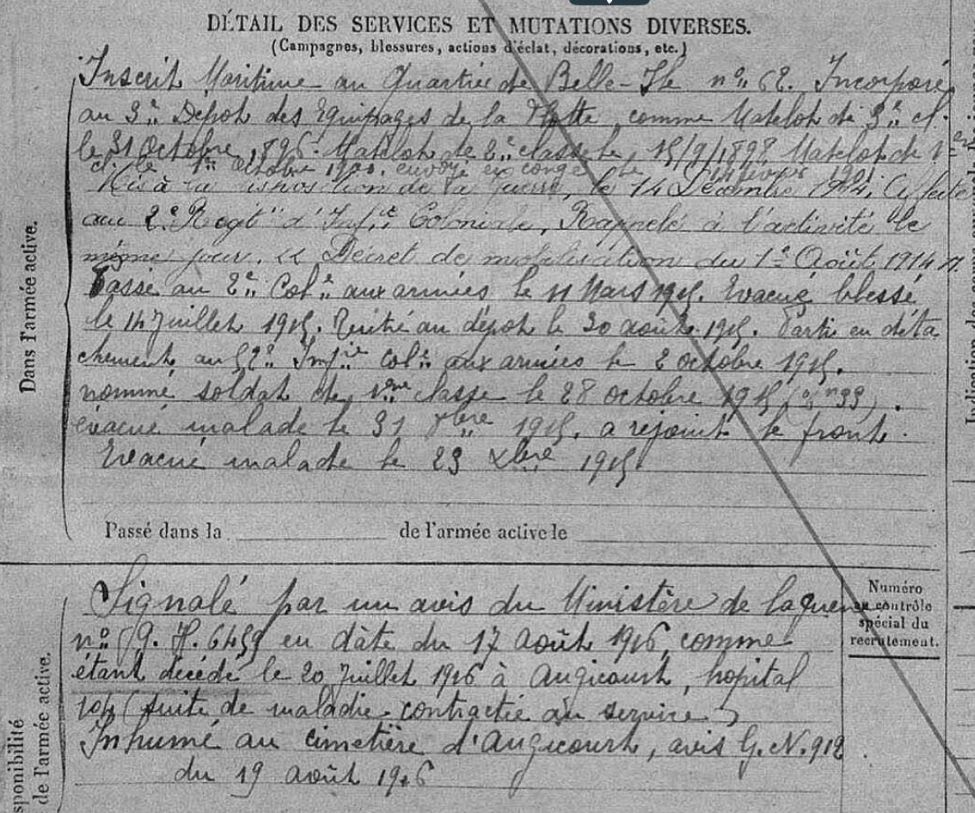 DÉTAIL DES SERVICES ET MUTATIONS DIVERSES.
(Campagnes, blessures, actions d'éclat, décorations, etc.)
Inscrit Maritime au Quartier de Belle-Ile n° 62. Incorporé
au 3e Dépot des Equipages de la Flotte, comme Matelot de 3e cl.
le 31 Octobre 1896. Matelot de 2e classe le 15/9/1898 Matelot de 1
et le 1er Octobre 1900. envoyé en congé le 14 février 1901
Mis à la disposition de la guerre, le 14 Décembre 1904; Affecté
au 2e Regt d'Infie Coloniale, Rappelé à l'activité le
même jour. Décret de mobilisation du 1er Août 1914
Passé au 2e Colal aux armées le 11 Mars 1915. Evacué blessé
le 14 Juillet 1915. Rentré au dépot le 30 août 1915. Parti en déta
chement au 52e Infie Cole aux armées le 2 octobre 1915.
nommé soldat de 1ère classe le 28 octobre 1915 (n° 33).
évacué malade le 31 8bre 1915. a rejoint le front.
Evacué malade le 23 Xbre 1915
Passé dans la de l'armée active le
Signalé par un avis du Ministère de la guerre
n° G. H. 6459 en dâte du 17 Août 1916, comme
étant décédé le 20 Juillet 1916 à Angicourt, hopital
104 (suite de maladie contractée au service)
Inhumé au cimetière d'Angicourt, avis G. N. 912
du 19 août 1916
Numéro
au contrôle
spécial du
recrutement.
Dans l'armée active.
sponibilité
de l'armée active.